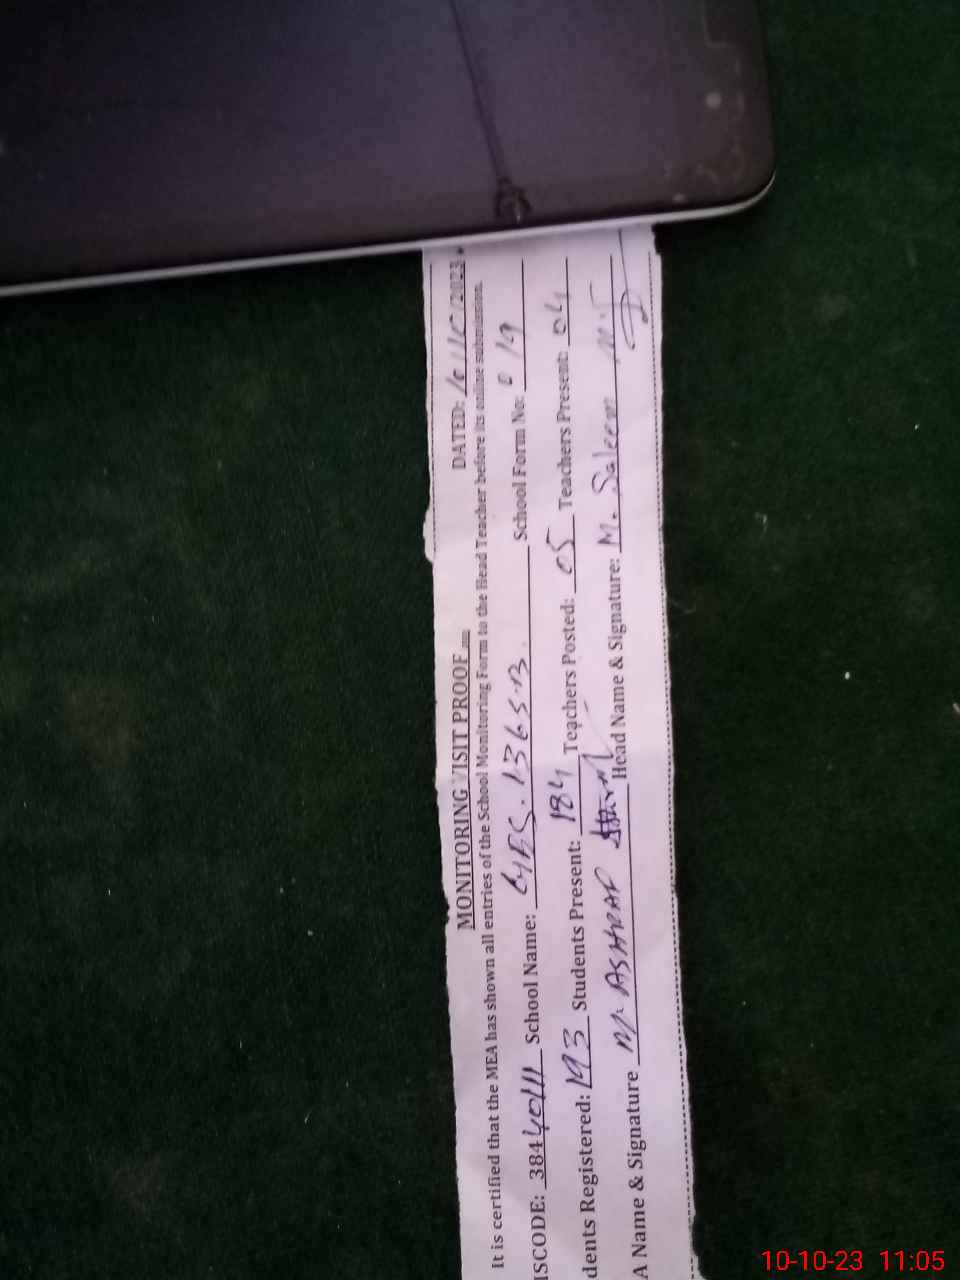 MONITORING VISIT PROOF DATED: 10/10/2023
It is certified that the MEA has shown all entries of the School Monitoring Form to the Head Teacher before its online submission.
ISCODE: 38440111 School Name: School Form No: 019
dents Registered: 193 Students Present: 184 Teachers Posted: 05 Teachers Present: 04
A Name & Signature M. ASHRAF Head Name & Signature: M. Saleem
10-10-23 11:05